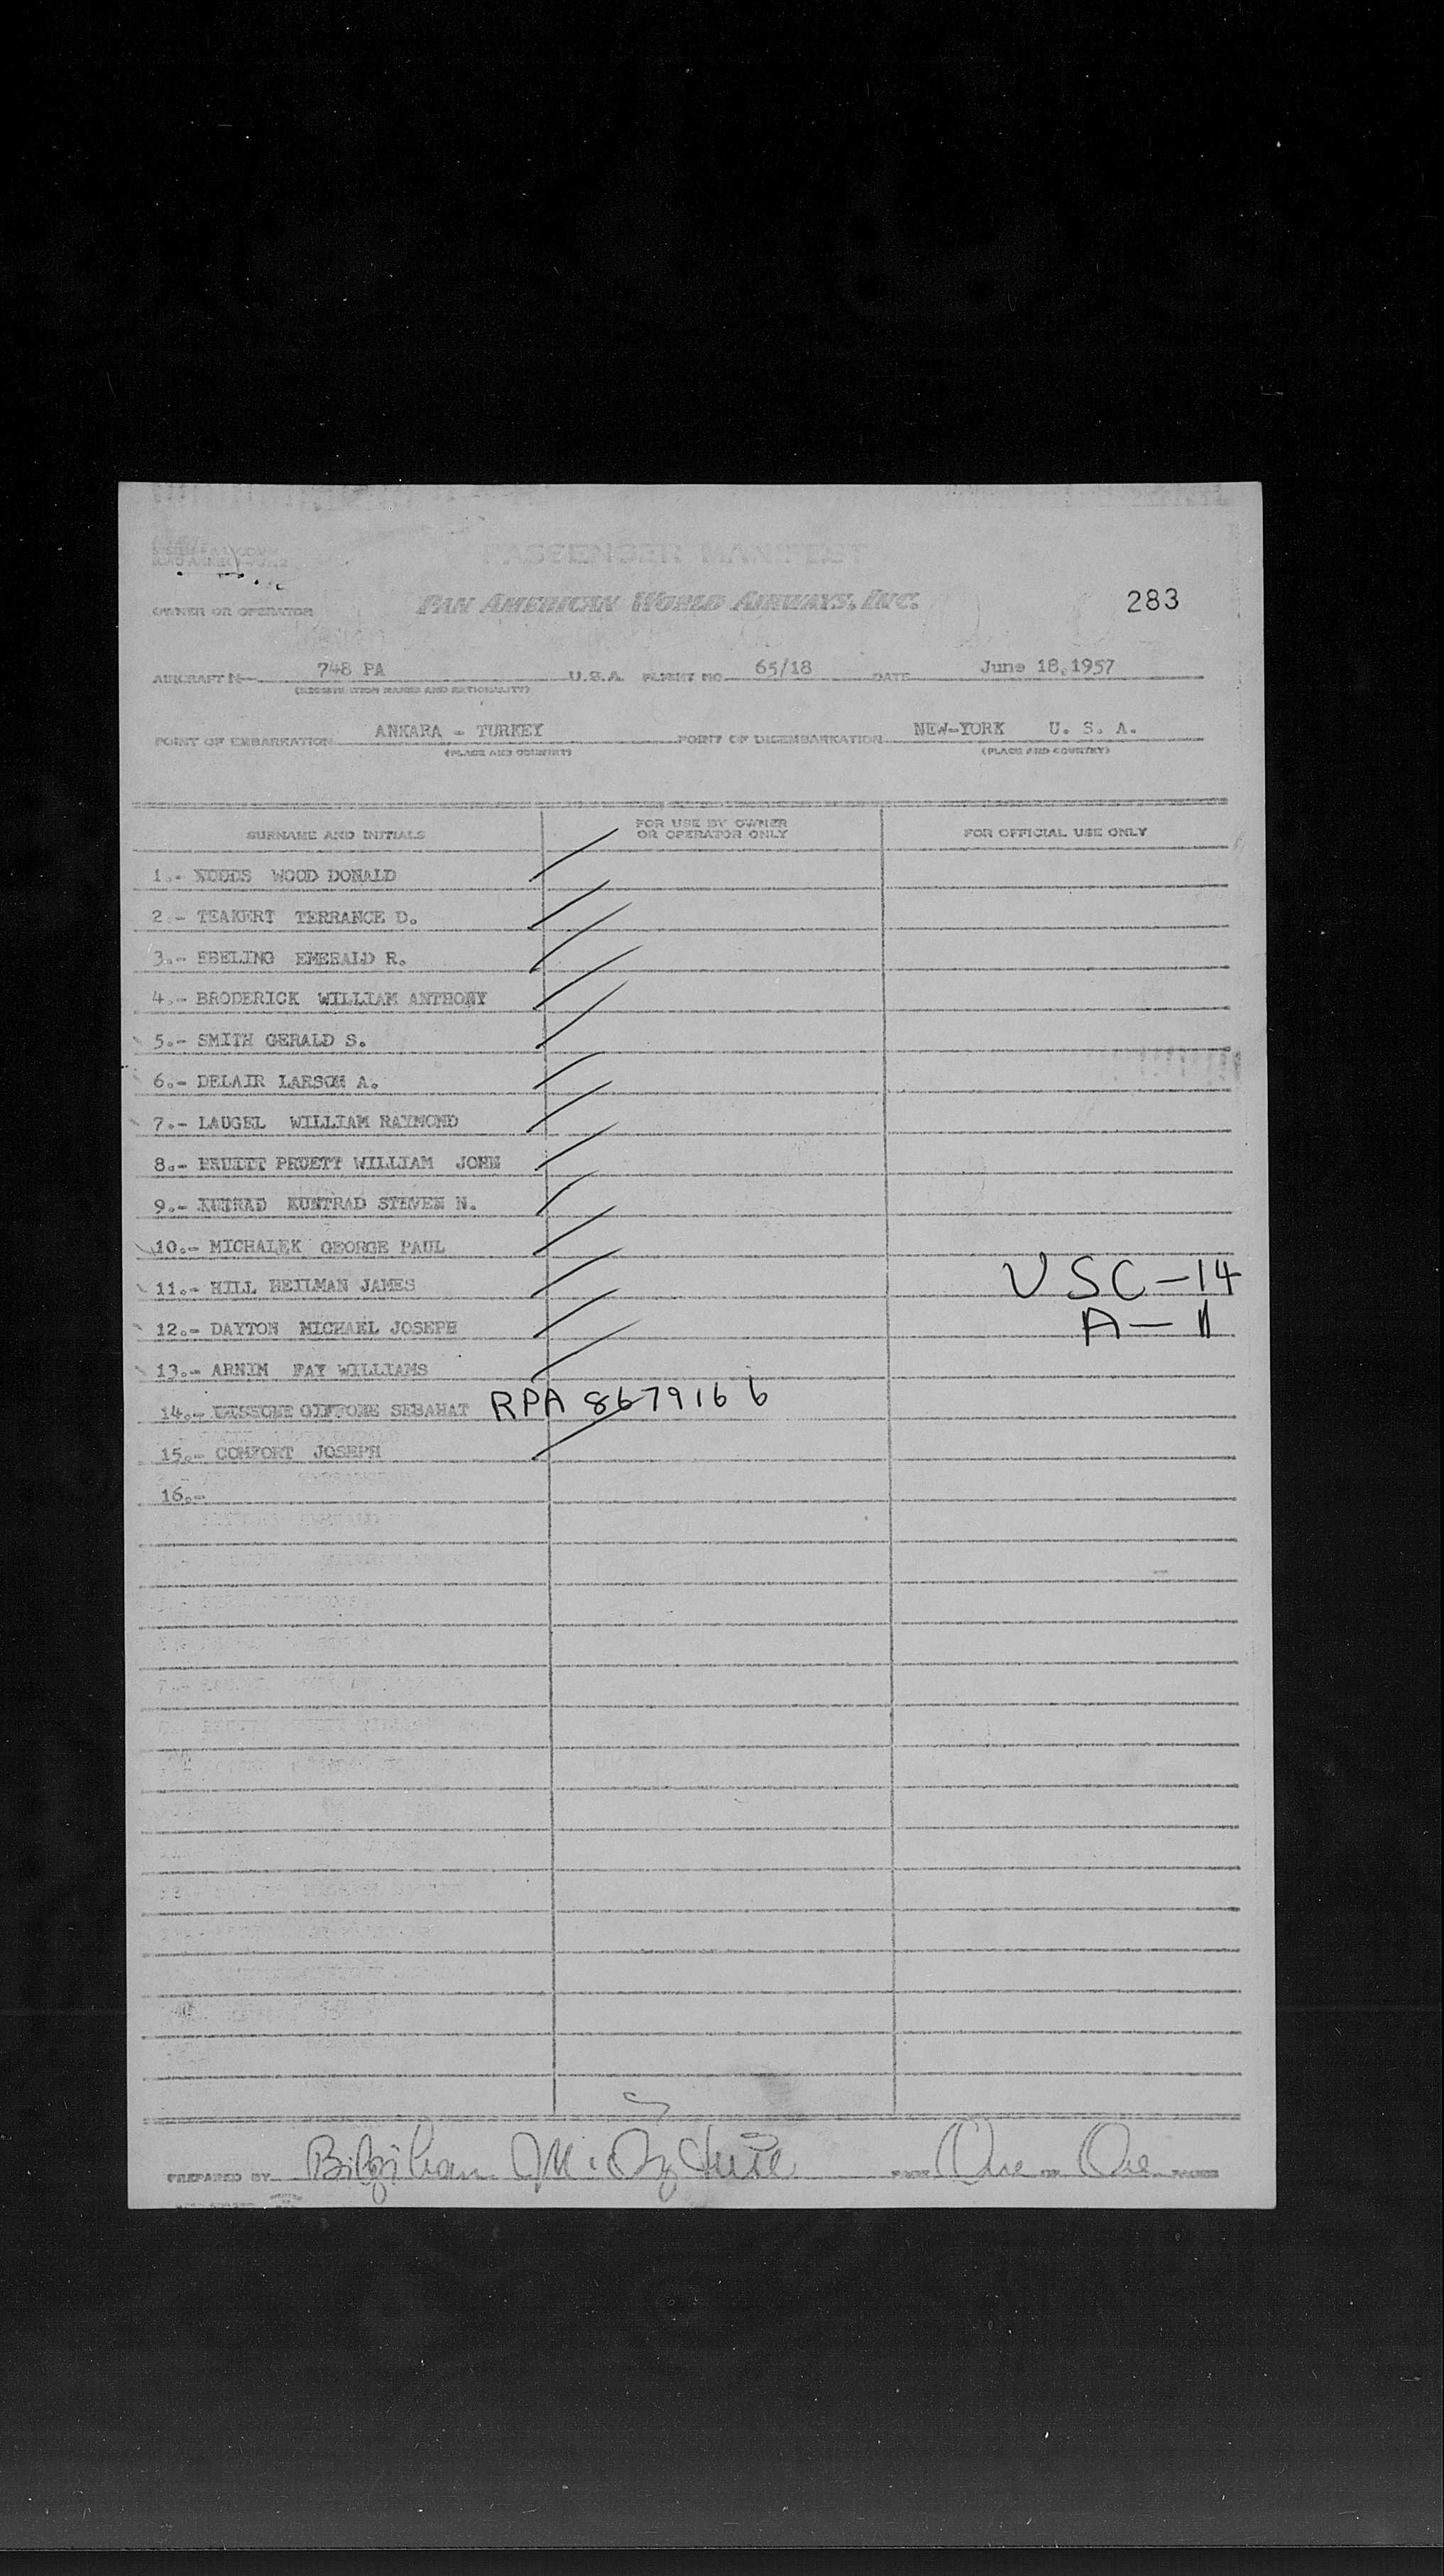 PASSENGER MANIFEST
OWNER OR OPERATOR PAN AMERICAN WORLD AIRWAYS, INC. 283
AIRCRAFT N— 748 PA U.S.A. FLIGHT NO. 65/18 DATE June 18,1957
(REGISTRATION MARKS AND NATIONALITY)
POINT OF EMBARKATION ANKARA - TURKEY POINT OF DISEMBARKATION NEW-YORK U. S. A.
(PLACE AND COUNTRY) (PLACE AND COUNTRY)
SURNAME AND INITIALS FOR USE BY OWNER OR OPERATOR ONLY FOR OFFICIAL USE ONLY
1.- WOOD DONALD
2.- TEAKERT TERRANCE D.
3.- EBELING EMERALD R.
4.- BRODERICK WILLIAM ANTHONY
5.- SMITH GERALD S.
6.- DELAIR LARSON A.
7.- LAUGEL WILLIAM RAYMOND
8.- PRUETT WILLIAM JOHN
9.- KUNTRAD STEVEN N.
10.- MICHALEK GEORGE PAUL
11.- HILL HEILMAN JAMES USC-14
12.- DAYTON MICHAEL JOSEPH A-1
13.- ARNIM FAY WILLIAMS
14.- SEBAHAT RPA 8679166
15.- COMFORT JOSEPH
16.-
PREPARED BY PAGE One OF One PAGES